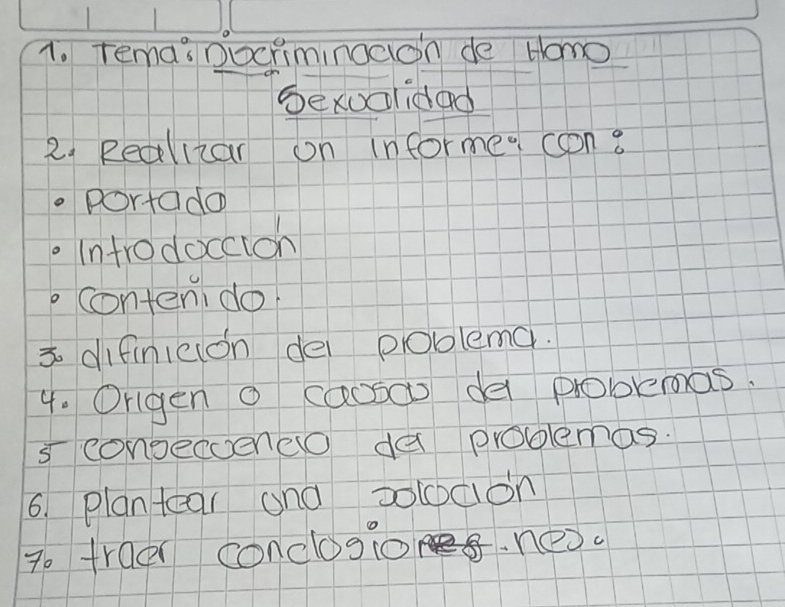 1. Tema: Discriminación de Homo
Sexualidad
2. Realizar un informe, con:
• Portada
• Introducción
• Contenido.
3. difinición del problema.
4. Origen o causas del problemas.
5 consecuencia del problemas.
6. plantear una solución
7. traer conclusiones.nes.